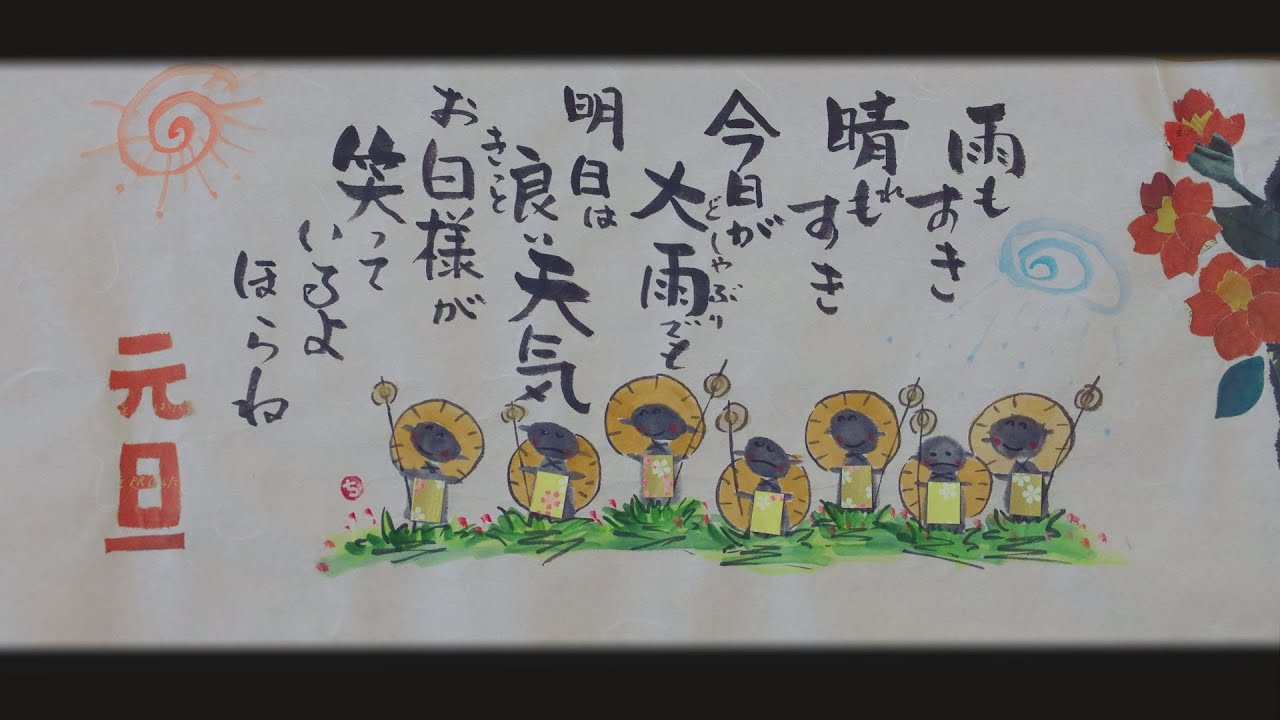 雨も
すき
晴れも
すき
今日が
大雨でも
どしゃぶり
明日は
良い天気
きっと
お日様が
笑って
いるよ
ほらね
元旦